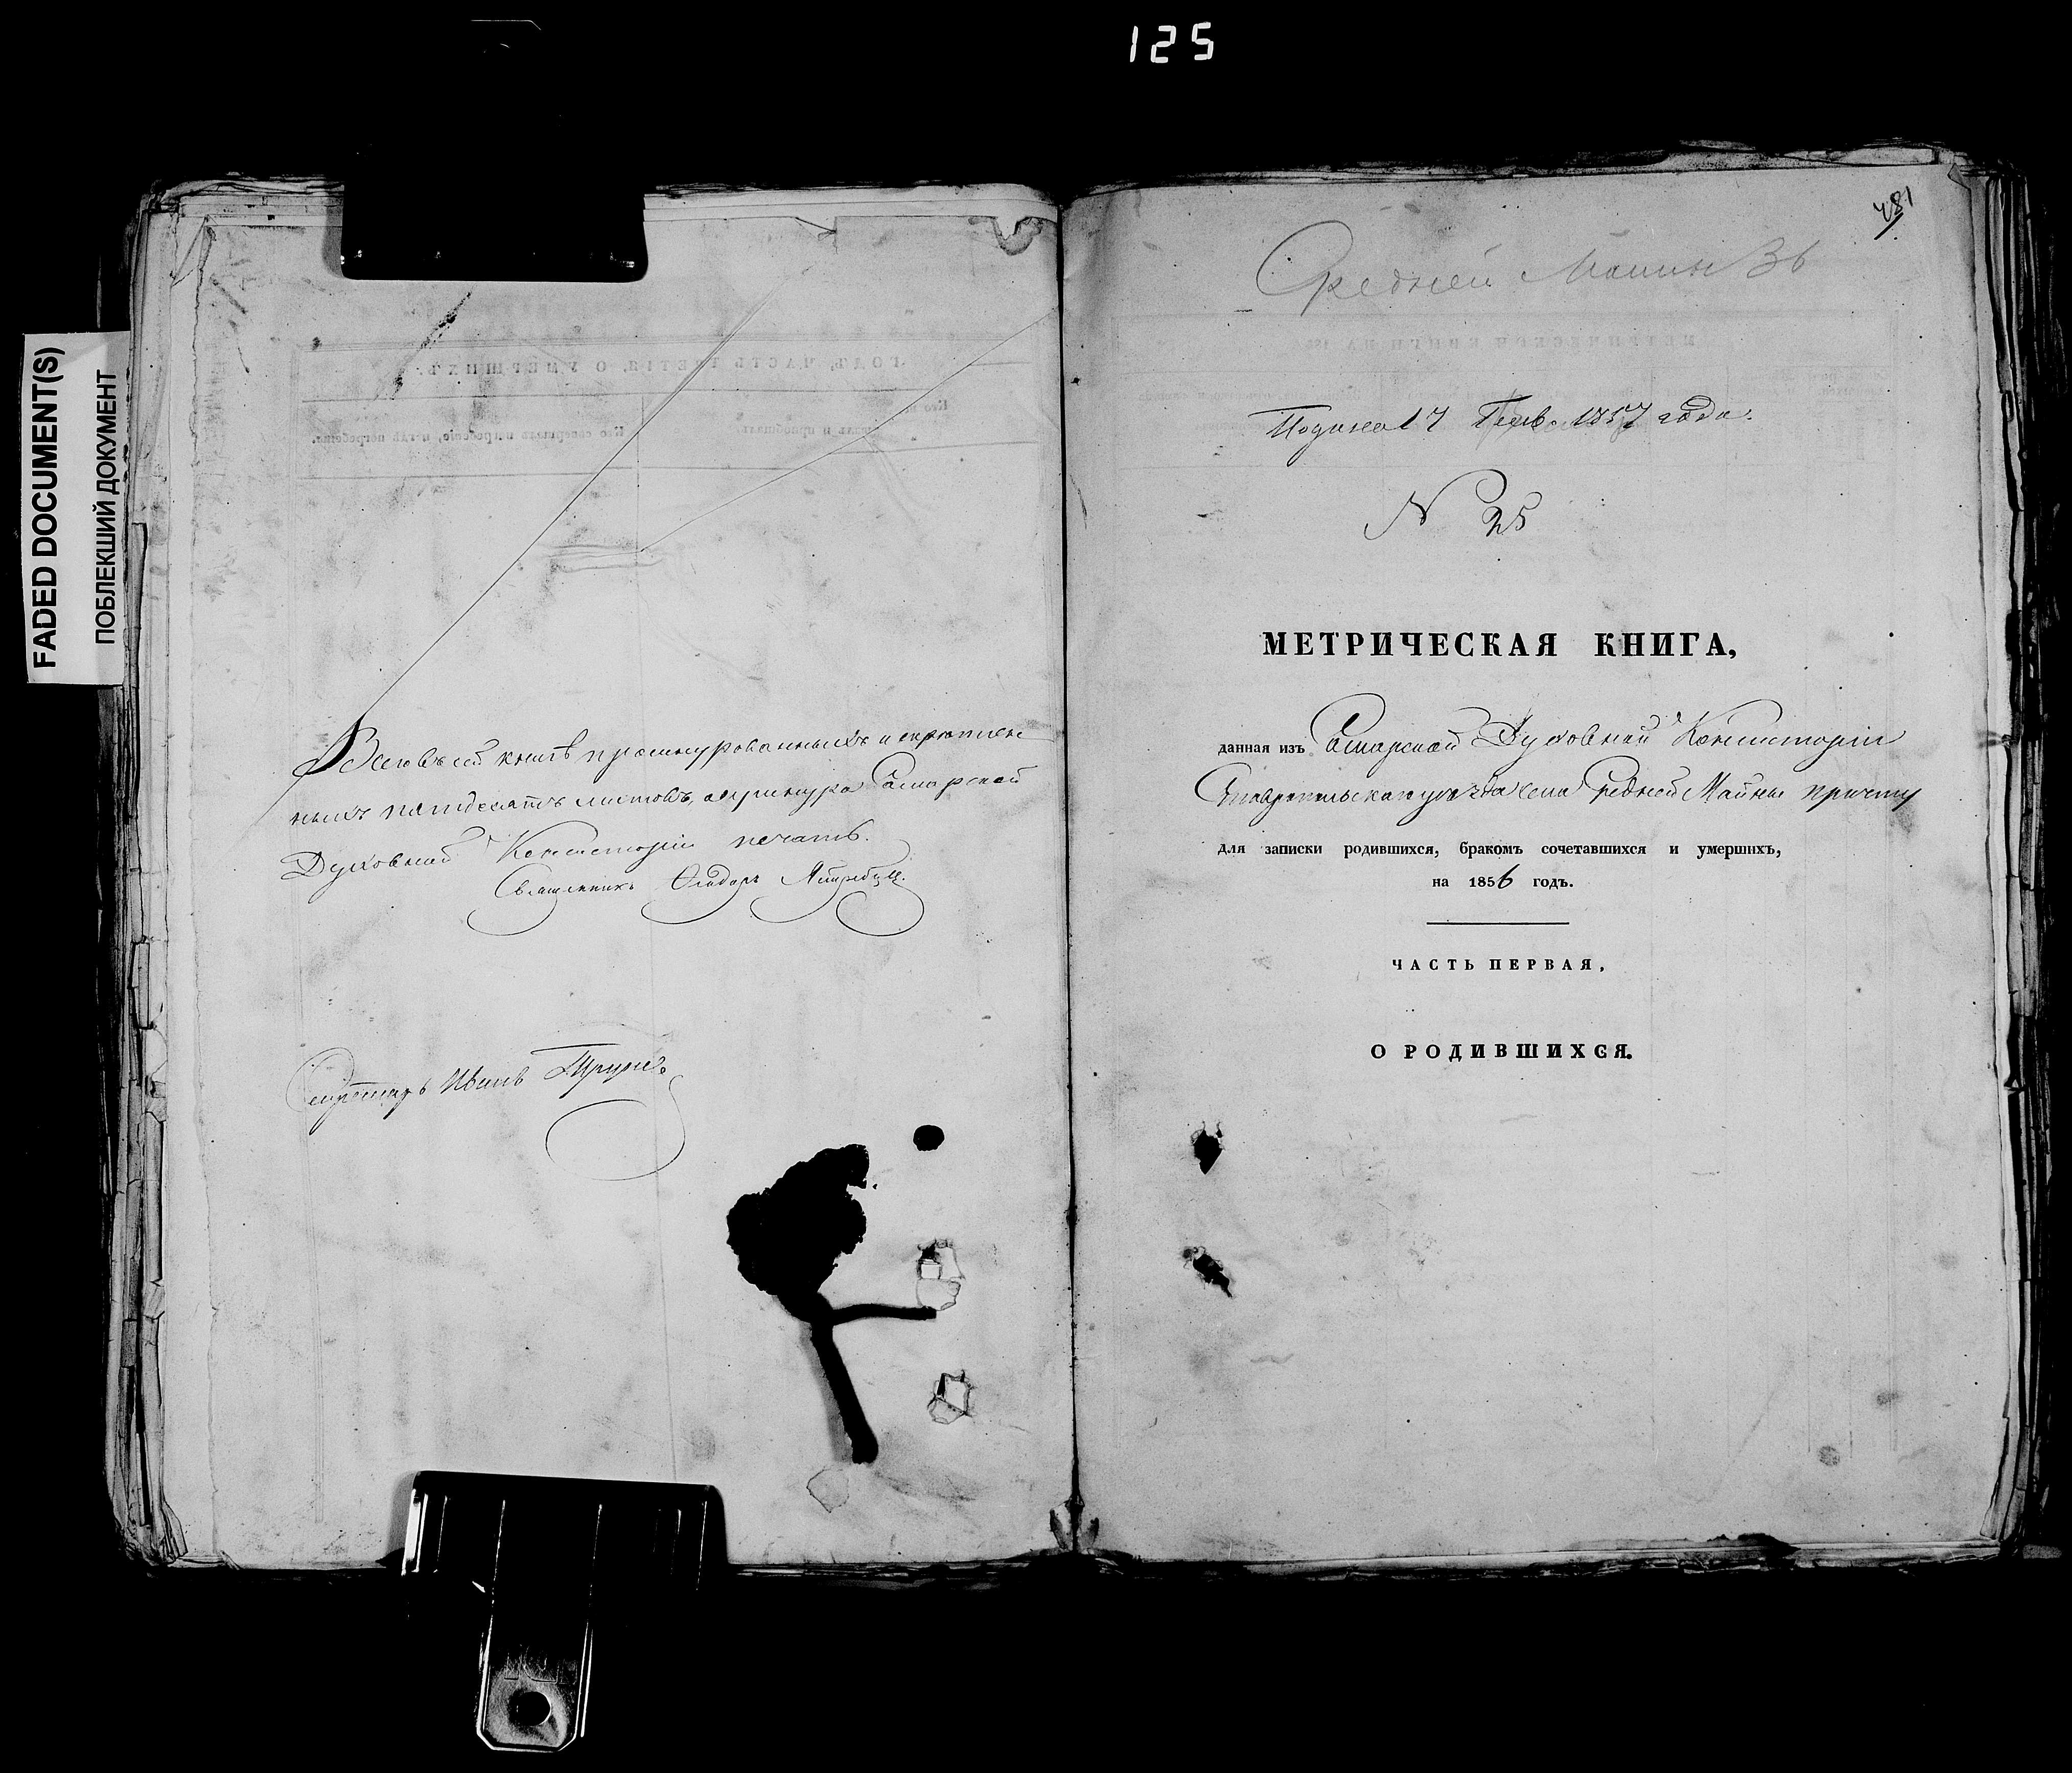 125
FADED DOCUMENT(S)
ПОБЛЕКШИЙ ДОКУМЕНТ
ГОДЪ, ЧАСТЬ ТРЕТІЯ, О УМЕРШИХЪ.
Кто совершалъ погребеніе, и гдѣ погребены.
Всего въ сей книгѣ прошнурованныхъ и скрѣплен
ныхъ пятдесятъ листовъ, у шнура Самарской
Духовной Консисторіи печать.
Священникъ Ѳеодоръ
Секретарь Иванъ
481
Средней Майны 36
Подана 17 Генв 1857 года.
N 25
МЕТРИЧЕСКАЯ КНИГА,
данная изъ Самарской Духовной Консисторіи
Ставропольскаго уѣзда села Средней Майны причту
для записки родившихся, бракомъ сочетавшихся и умершихъ,
на 1856 годъ.
ЧАСТЬ ПЕРВАЯ,
О РОДИВШИХСЯ.